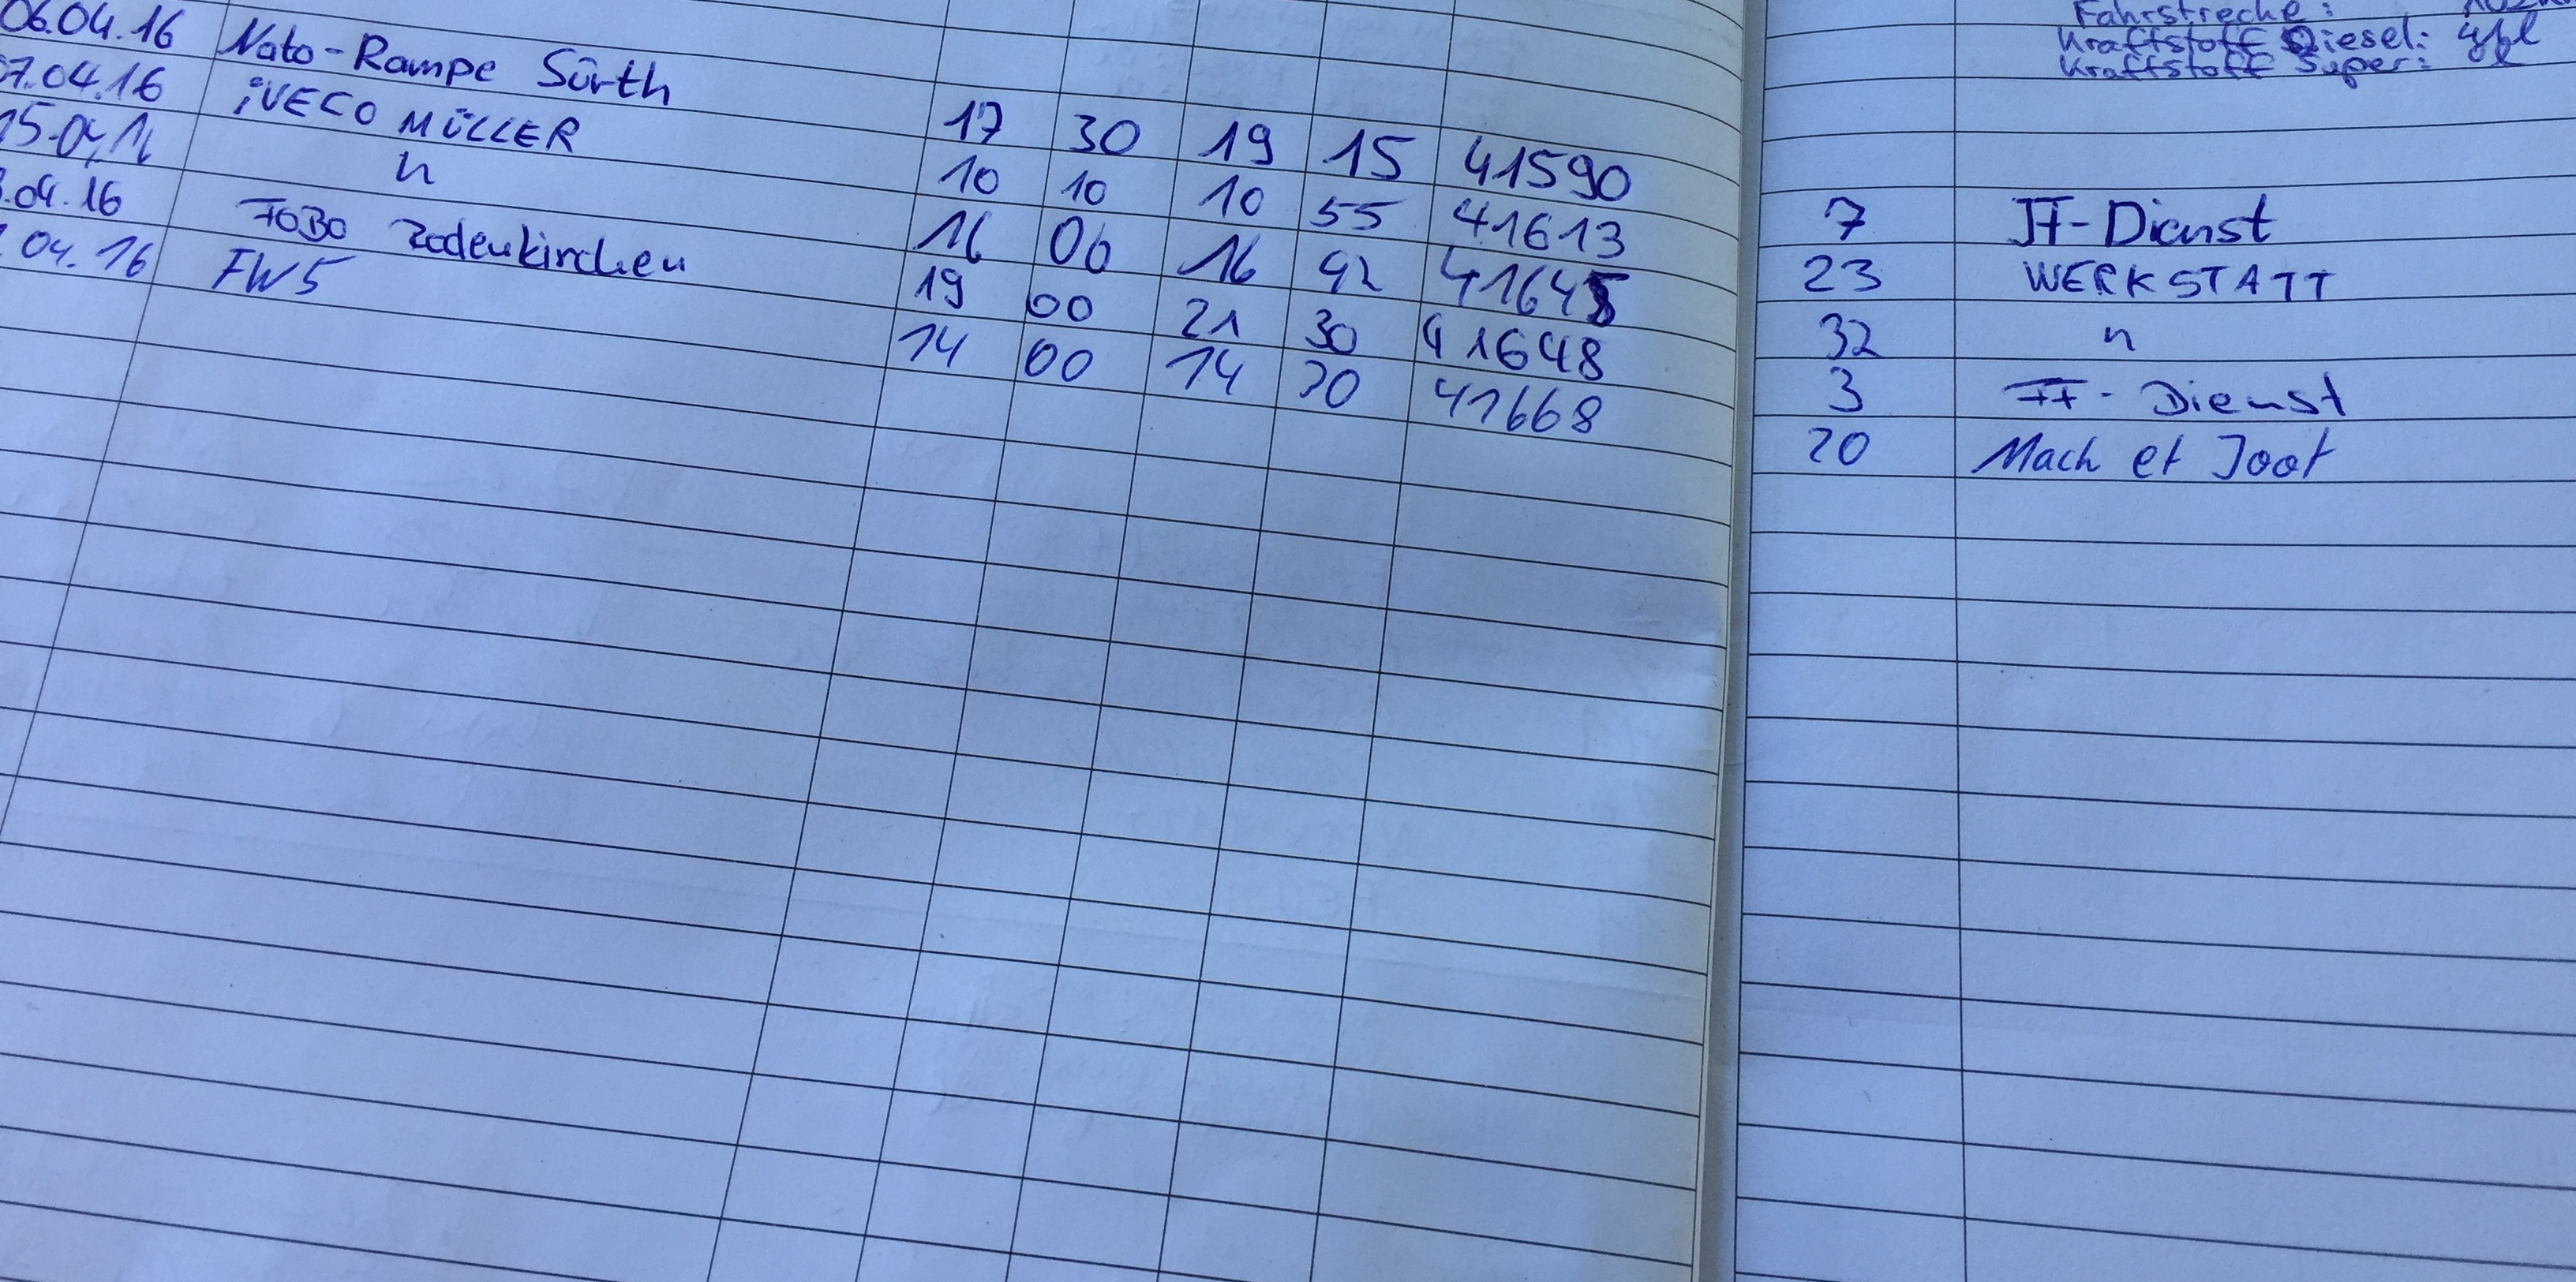 Fahrstrecke:
Kraftstoff Diesel:
Kraftstoff Super:
06.04.16 Nato-Rampe Sürth 17 30 19 15 41590 7 JF-Dienst
07.04.16 iVECO MÜLLER 10 10 10 55 41613 23 WERKSTATT
15.04.16 n 16 00 16 42 41645 32 n
.04.16 FOBO Rodenkirchen 19 00 21 30 41648 3 FF-Dienst
04.16 FW5 14 00 14 20 41668 20 Mach et Joot